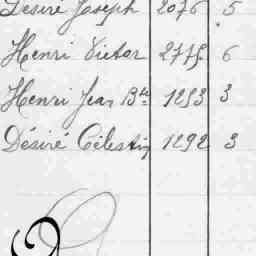 Désiré Joseph 2076 5
Henri Victor 2775 6
Henri Jean Bte 1253 3
Désiré Célestin 1292 3